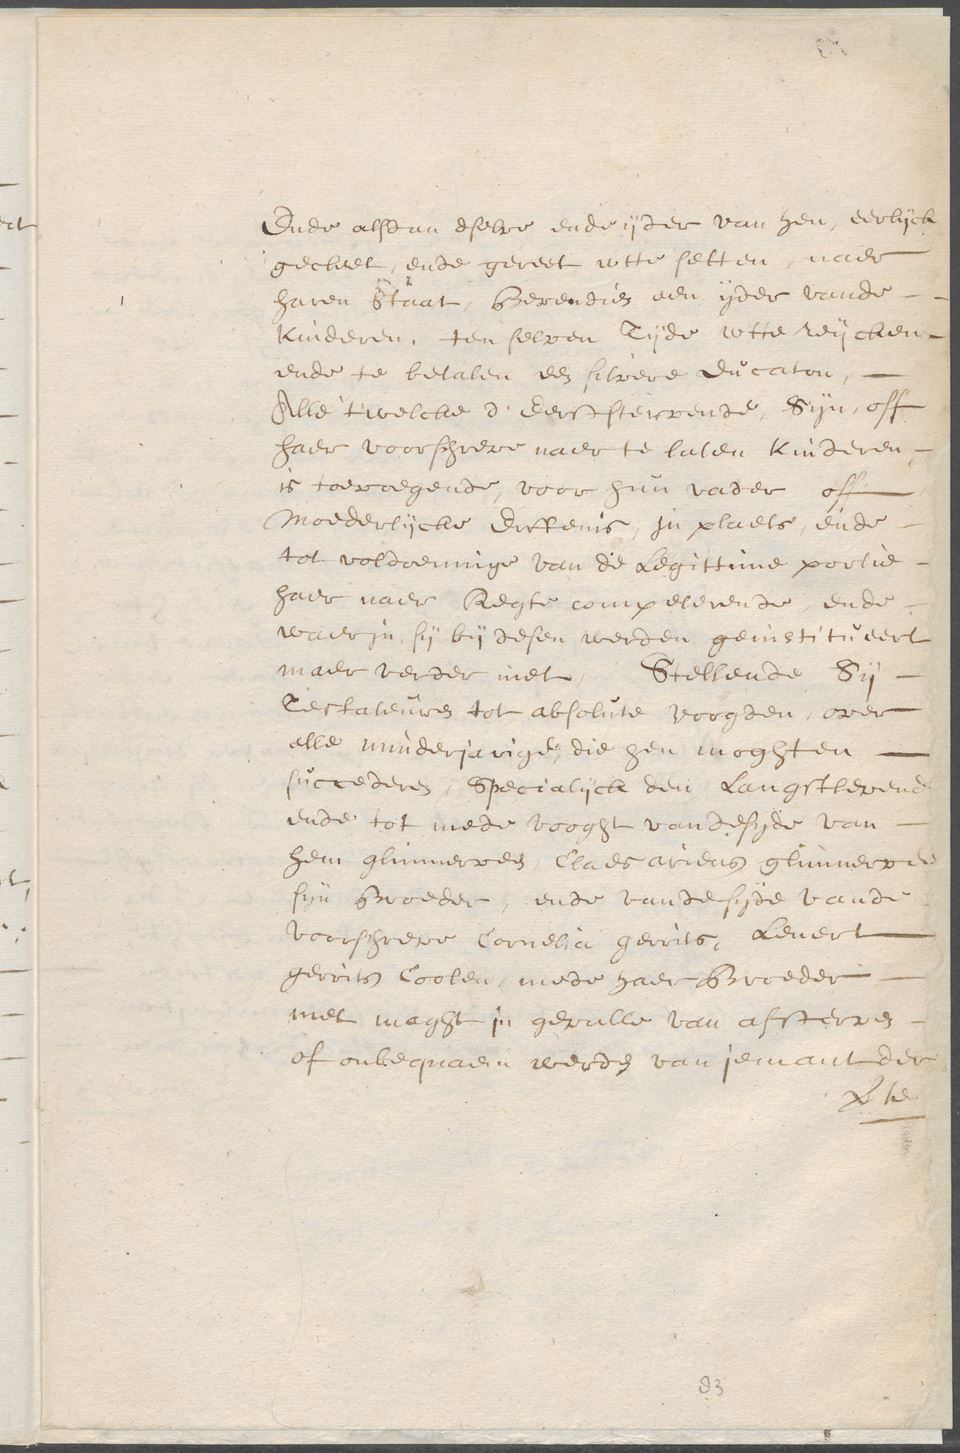 Ende alsdan dselve ende ijder van hen, eerlijck
gecleet, ende gereet wtte setten, naer
haren Staat, Bovendien een ijder vande
kinderen, ten selven Tijde wtte reijcken
ende te betalen een silvere Ducaton,
Alle twelcke d' Eerststervende, Sijn, off
haer voorschreve naer te laten kinderen,
is toevoegende, voor hun vader off
Moederlijcke Erffenis, in plaets, ende
tot voldoeninge van de Legittime portie
haer naer Regte competerende, ende
waer in sij bij desen werden geinstitueert
maer verder niet, Stellende Sij
Testateuren tot absolute voogden, over
alle minderjarige, die hen moghten
succederen, Specialijck den Langstlevend
ende tot mede vooght vande sijde van
hem glimmerveen, Claes ariens glimmervee
sijn Broeder, ende vande sijde vande
voorschreve Cornelia gerrits, Lenert
gerrits Coolen, mede haer Broeder
met maght in gevalle van afsterven
of onbequaem werden van jemant der
83